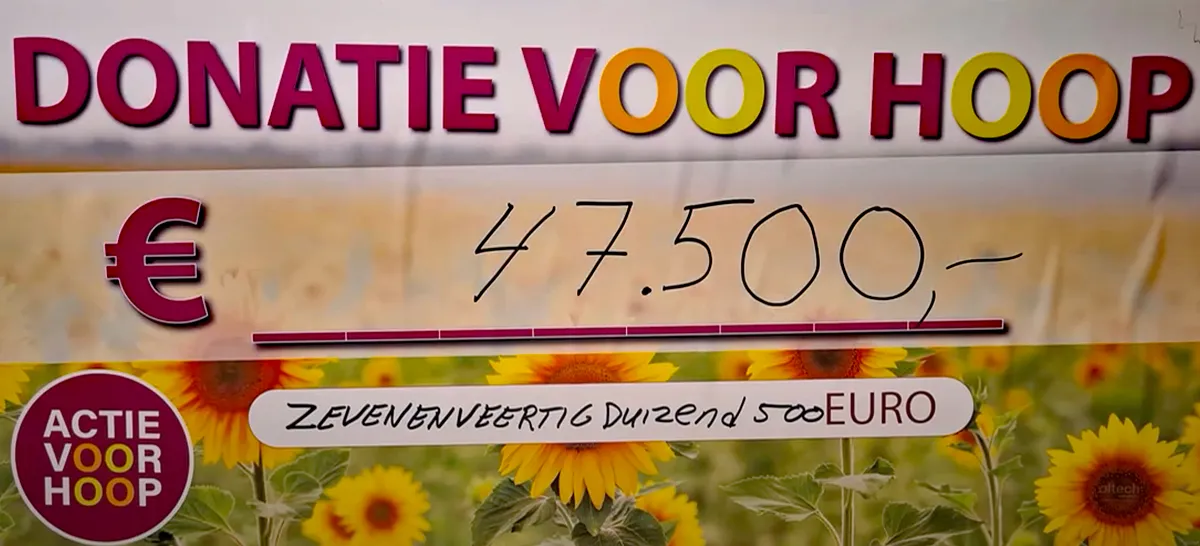 DONATIE VOOR HOOP
€ 47.500,-
ZEVENENVEERTIG Duizend 500 EURO
ACTIE
VOOR
HOOP
altech